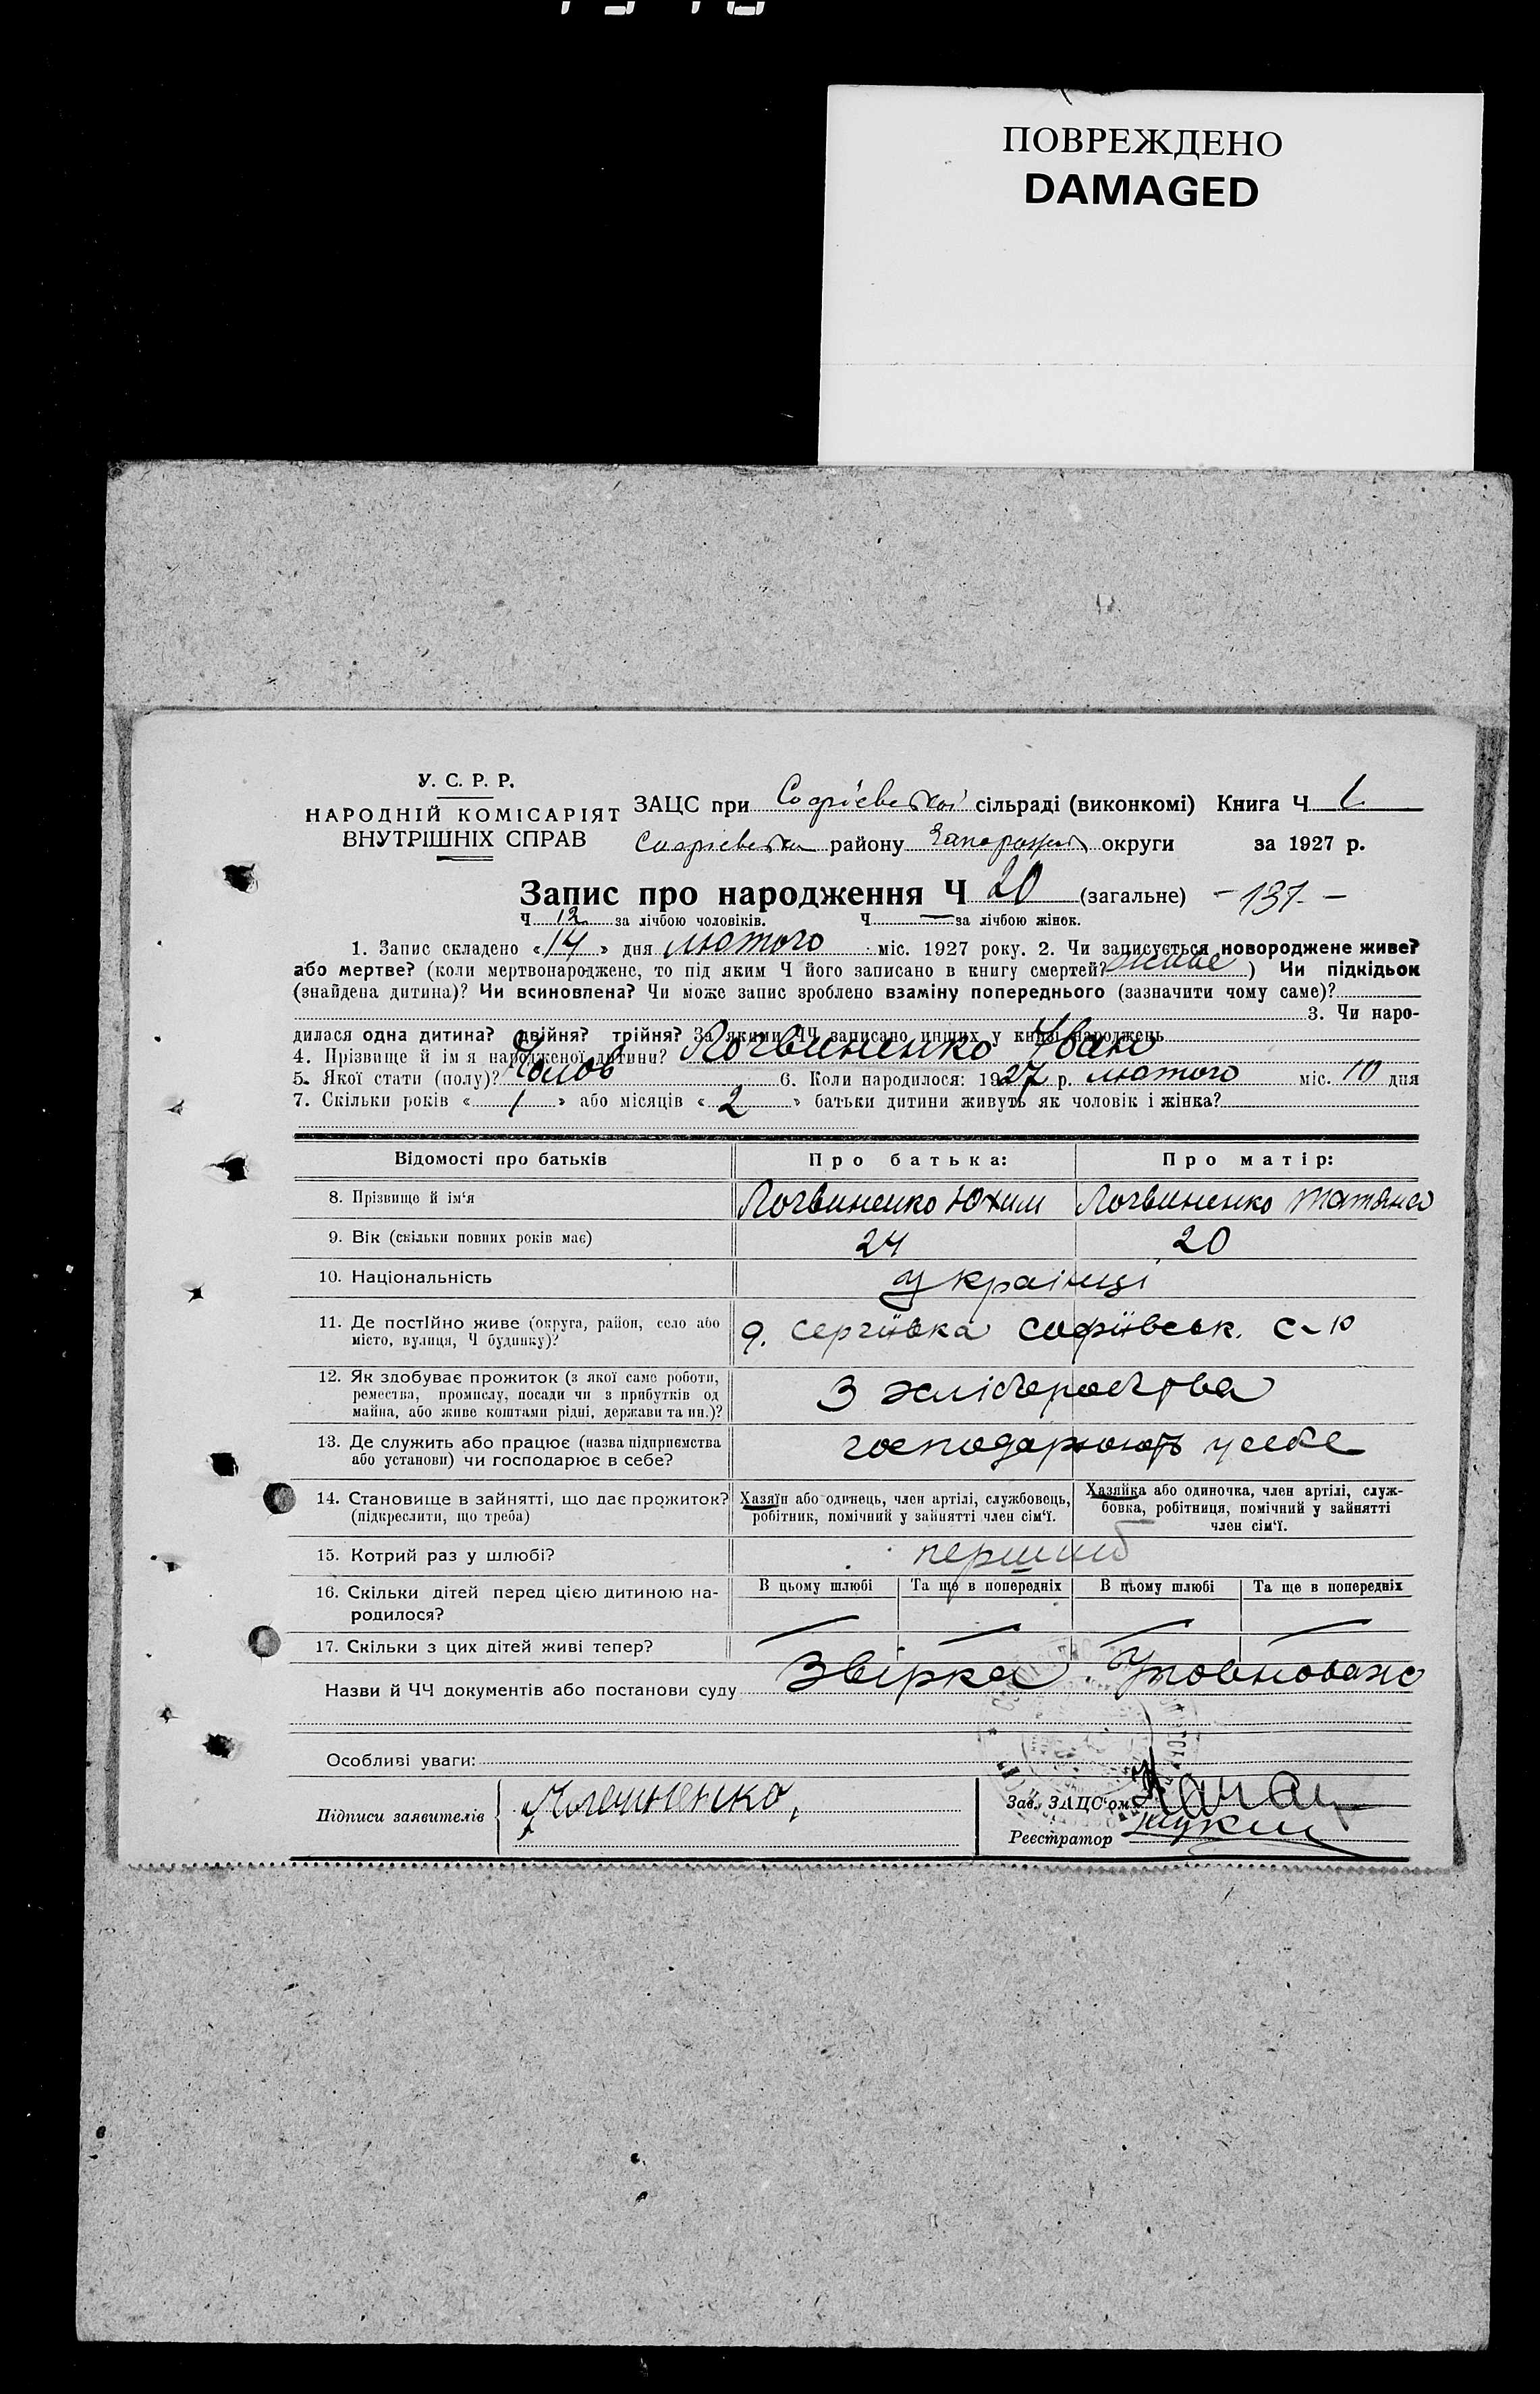 ПОВРЕЖДЕНО
DAMAGED
У. С. Р. Р.
НАРОДНІЙ КОМІСАРІЯТ
ВНУТРІШНІХ СПРАВ
ЗАЦС при Софіевській сільраді (виконкомі) Книга Ч 1
Софіевськ району Запорізьк округи за 1927 р.
Запис про народження Ч 20 (загальне) - 137 -
Ч 12 за лічбою чоловіків. Ч — за лічбою жінок.
1. Запис складено «14» дня лютого міс. 1927 року. 2. Чи записується новороджене живе?
або мертве? (коли мертвонароджене, то під яким Ч його записано в книгу смертей? живе) Чи підкідьок
(знайдена дитина)? Чи всиновлена? Чи може запис зроблено взаміну попереднього (зазначити чому саме)?
3. Чи наро-
дилася одна дитина? двійня? трійня? За якими ЧЧ записано инших у книзі народжень
4. Прізвище й ім я народженої дитини? Логвиненко Іван
5. Якої стати (полу)? Чолов 6. Коли народилося: 1927 р. лютого міс. 10 дня
7. Скільки років «1» або місяців «2» батьки дитини живуть як чоловік і жінка?
Відомості про батьків Про батька: Про матір:
8. Прізвище й ім'я Логвиненко Юхим Логвиненко Татяна
9. Вік (скільки повних років має) 24 20
10. Національність Українці
11. Де постійно живе (округа, район, село або
місто, вулиця, Ч будинку)? Сергіївка Софіївськ. С-ю
12. Як здобуває прожиток (з якої саме роботи,
ремества, промислу, посади чи з прибутків од
майна, або живе коштами рідні, держави та ин.)? З хліборобства
13. Де служить або працює (назва підприємства
або установи) чи господарює в себе? господарюють у себе
14. Становище в зайнятті, що дає прожиток?
(підкреслити, що треба)
Хазяїн або одинець, член артілі, службовець,
робітник, помічний у зайнятті член сім'ї.
Хазяйка або одиночка, член артілі, служ-
бовка, робітниця, помічний у зайнятті
член сім'ї.
15. Котрий раз у шлюбі? перший
16. Скільки дітей перед цією дитиною на-
родилося?
В цьому шлюбі Та ще в попередніх В цьому шлюбі Та ще в попередніх
17. Скільки з цих дітей живі тепер?
Назви й ЧЧ документів або постанови суду Звірка Уповноваж
Особливі уваги:
Підписи заявителів
Зав. ЗАЦС'ом
Реєстратор